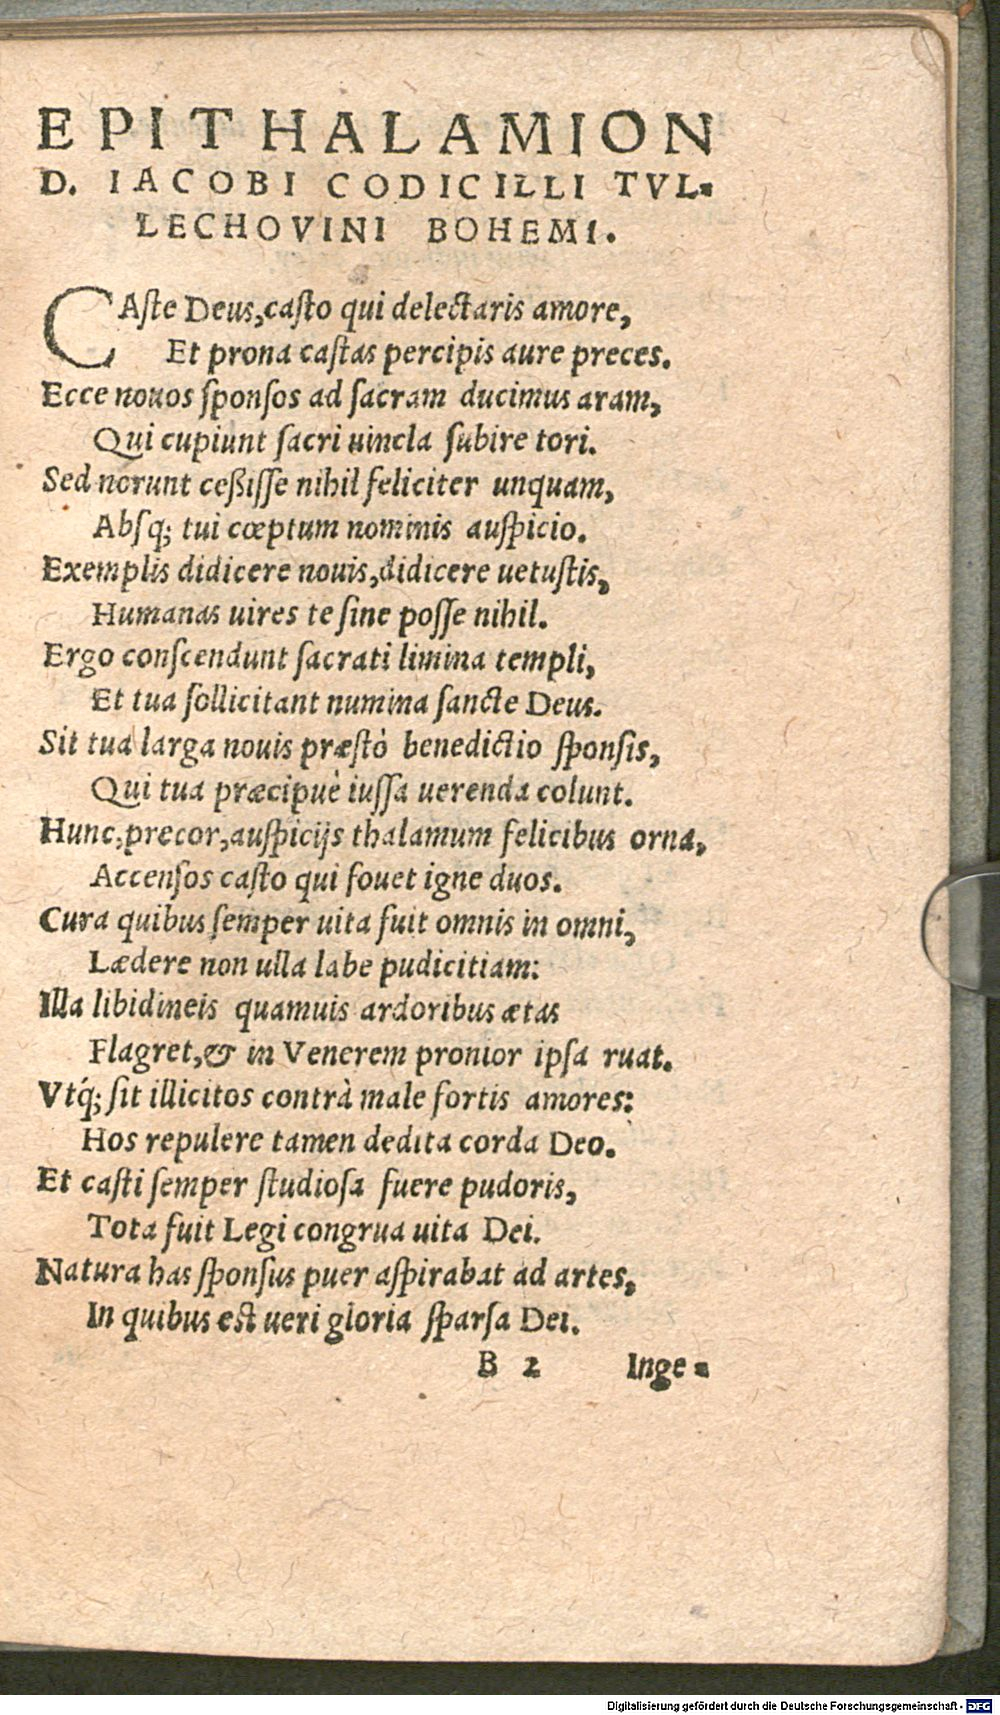 EPITHALAMION
D. IACOBI CODICILLI TVL-
LECHOVINI BOHEMI.
CAſte Deus, caſto qui delectaris amore,
Et prona caſtas percipis aure preces.
Ecce nouos ſponſos ad ſacram ducimus aram,
Qui cupiunt ſacri uincla ſubire tori.
Sed norunt ceßiſſe nihil feliciter unquam,
Abſq; tui cœptum nominis auſpicio.
Exemplis didicere nouis, didicere uetuſtis,
Humanas uires te ſine poſſe nihil.
Ergo conſcendunt ſacrati limina templi,
Et tua ſollicitant numina ſancte Deus.
Sit tua larga nouis præſtò benedictio ſponſis,
Qui tua præcipuè iuſſa uerenda colunt.
Hunc, precor, auſpicijs thalamum felicibus orna,
Accenſos caſto qui fouet igne duos.
Cura quibus ſemper uita fuit omnis in omni,
Lædere non ulla labe pudicitiam:
Illa libidineis quamuis ardoribus ætas
Flagret, & in Venerem pronior ipſa ruat.
Vtq́; ſit illicitos contrà male fortis amores:
Hos repulere tamen dedita corda Deo.
Et caſti ſemper ſtudioſa fuere pudoris,
Tota fuit Legi congrua uita Dei.
Natura has ſponſus puer aſpirabat ad artes,
In quibus eſt ueri gloria ſparſa Dei.
B 2 Inge-
Digitalisierung gefördert durch die Deutsche Forschungsgemeinschaft - DFG